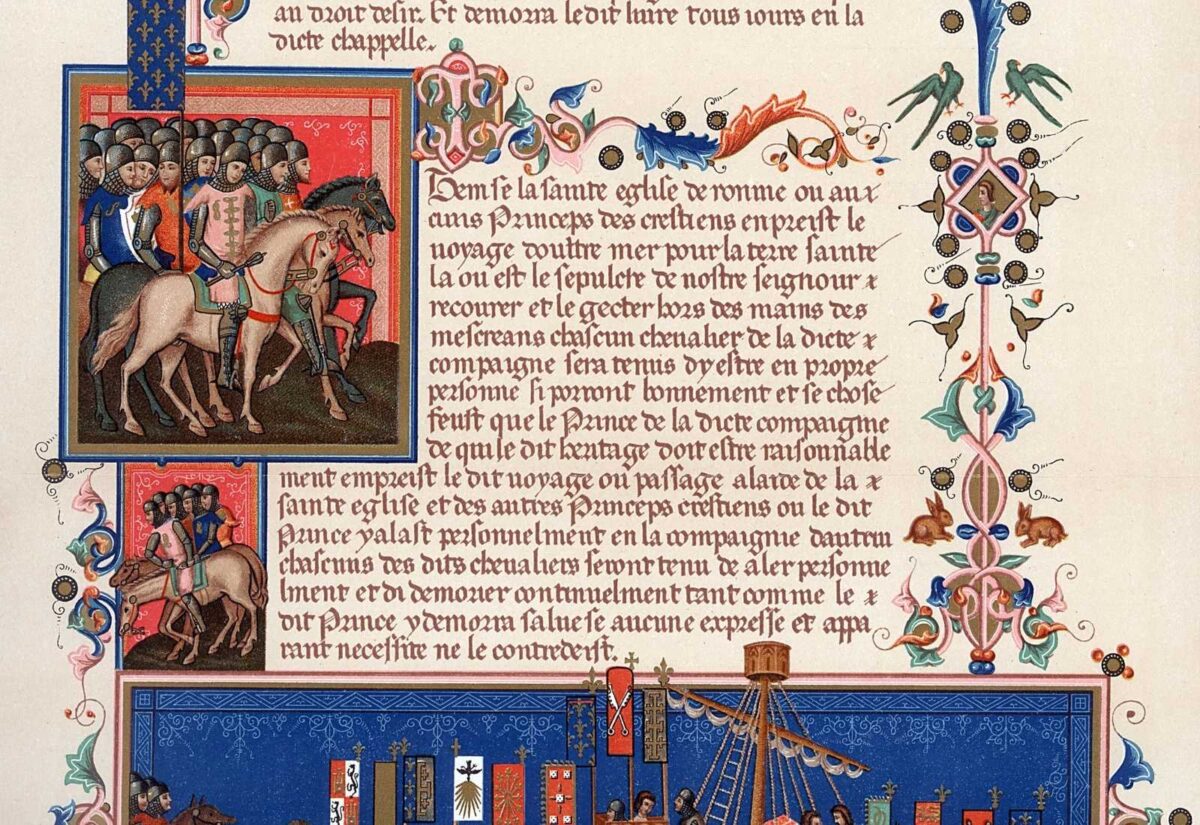 an droit desir. Et demorra ledit livre tous iours en la
dicte chappelle.
Item se la sainte eglise de romme ou aux
cuns Princeps des crestiens enpreist le
voyage doultre mer pour la terre sainte
la ou est le sepulcre de nostre seignour x
recourer et le gecter hors des mains des
mescreans chascun chevalier de la dicte x
compaignie sera tenus dy estre en propre
personne si porront bonnement et se chose
feust que le Prince de la dicte compaigme
de qui le dit heritage doit estre raisonnable
ment empreist le dit voyage ou passage alaide de la x
sainte eglise et des autres Princeps crestiens ou le dit
Prince y alast personnelment en la compaignie dautrui
chascuns des dits chevaliers seront tenu de aler personne
lment et di demorer continuelment tant comme le x
dit Prince y demorra salve se aucune expresse et appa
rant necessite ne le contredeist.